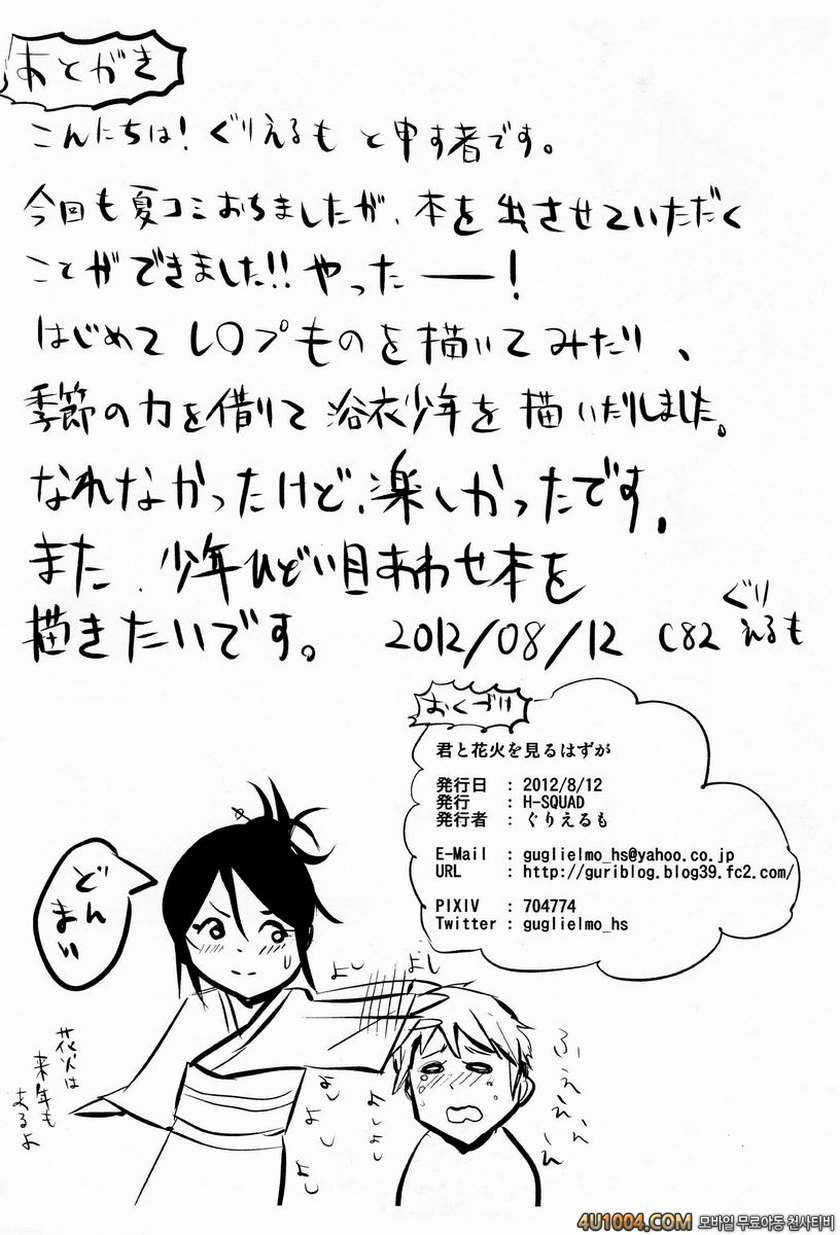 あとがき
こんにちは! ぐりえるも と申す者です。
今回も夏コミおちましたが、本を出させていただく
ことができました!! やったー!
はじめてレ〇プものを描いてみたり、
季節の力を借りて浴衣少年を描いたりしました。
なれなかったけど、楽しかったです。
また、少年ひどい目あわせ本を
描きたいです。 2012/08/12 C82 ぐりえるも
おくづけ
君と花火を見るはずが
発行日 : 2012/8/12
発行 : H-SQUAD
発行者 : ぐりえるも
E-Mail : guglielmo_hs@yahoo.co.jp
URL : http://guriblog.blog39.fc2.com/
PIXIV : 704774
Twitter : guglielmo_hs
どんまい
よし
よし
よし
よし
よし
よし
よしよし
ふええんええん
花火は
来年も
あるよ
4U1004.COM 모바일 무료야동 천사티비